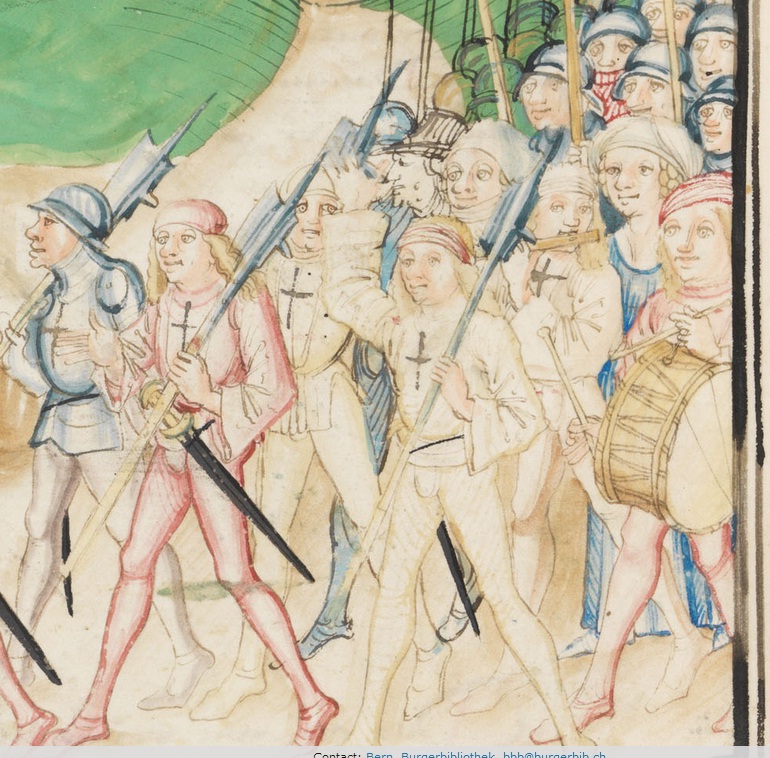 Contact: Bern, Burgerbibliothek, bbb@burgerbib.ch